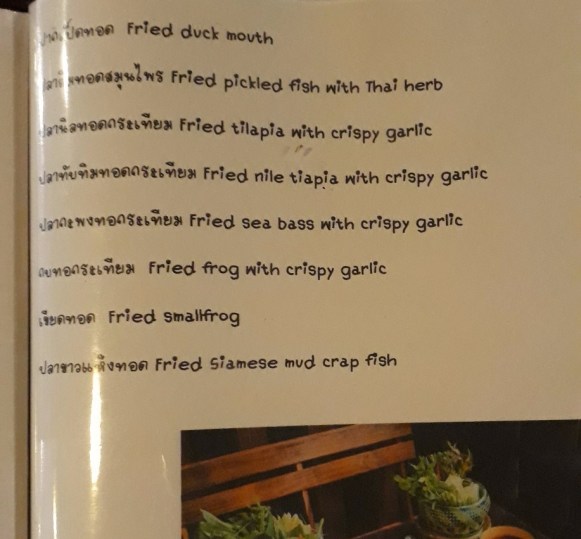 ปากเป็ดทอด Fried duck mouth
ปลาส้มทอดสมุนไพร Fried pickled fish with Thai herb
ปลานิลทอดกระเทียม Fried tilapia with crispy garlic
ปลาทับทิมทอดกระเทียม Fried nile tiapia with crispy garlic
ปลากะพงทอกระเทียม Fried sea bass with crispy garlic
กบทอกระเทียม Fried frog with crispy garlic
เขียดทอด Fried smallfrog
ปลาขาวแห้งทอด Fried Siamese mud crap fish